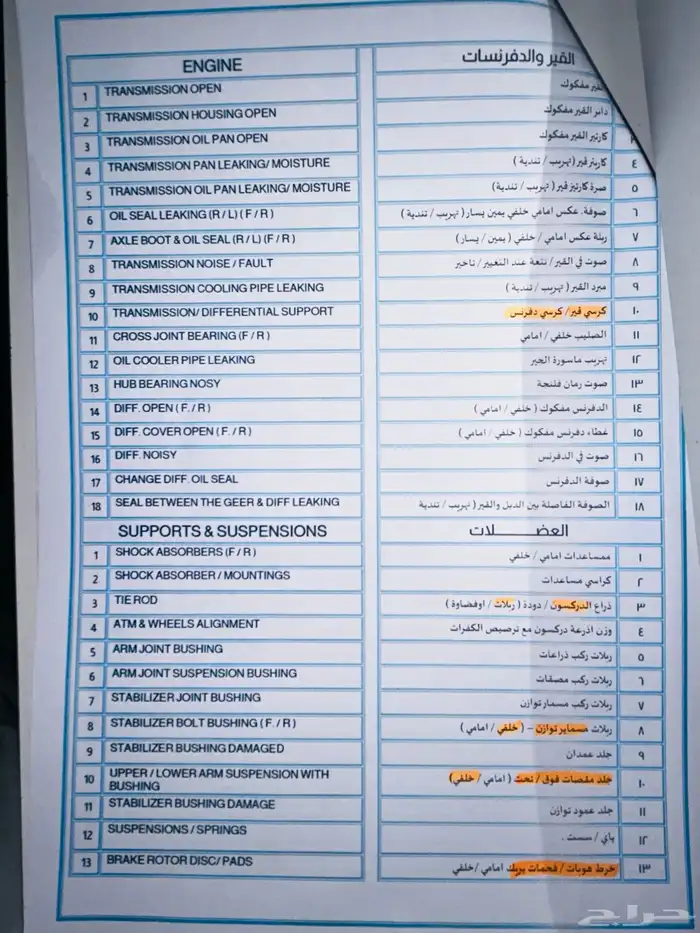 ENGINE القير والدفرنسات
1 TRANSMISSION OPEN القير مفكوك
2 TRANSMISSION HOUSING OPEN دامر القير مفكوك
3 TRANSMISSION OIL PAN OPEN كارتير القير مفكوك ٣
4 TRANSMISSION PAN LEAKING/ MOISTURE كاربتر قير (تهريب / تندية) ٤
5 TRANSMISSION OIL PAN LEAKING/ MOISTURE صرة كارتيز قير (تهريب / تندية) ٥
6 OIL SEAL LEAKING (R / L) (F / R) صوفة. عكس امامي خلفي يمين يسار (تهريب / تندية) ٦
7 AXLE BOOT & OIL SEAL (R / L) (F / R) ربلة عكس امامي / خلفي (يمين / يسار) ٧
8 TRANSMISSION NOISE / FAULT صوت في القير / نتعة عند التغيير / تاخير ٨
9 TRANSMISSION COOLING PIPE LEAKING مبرد القير (تهريب / تندية) ٩
10 TRANSMISSION/ DIFFERENTIAL SUPPORT كرسي قير / كرسي دفرنس ١٠
11 CROSS JOINT BEARING (F / R) الصليب خلفي / امامي ١١
12 OIL COOLER PIPE LEAKING تهريب ماسورة الجير ١٢
13 HUB BEARING NOSY صوت رمان فلنجة ١٣
14 DIFF. OPEN ( F. / R) الدفرنس مفكوك (خلفي / امامي) ١٤
15 DIFF. COVER OPEN ( F. / R) غطاء دفرنس مفكوك (خلفي / امامي) ١٥
16 DIFF. NOISY صوت في الدفرنس ١٦
17 CHANGE DIFF. OIL SEAL صوفة الدفرنس ١٧
18 SEAL BETWEEN THE GEER & DIFF LEAKING الصوفة الفاصلة بين الدبل والقير (تهريب / تندية ١٨
SUPPORTS & SUSPENSIONS العضلات
1 SHOCK ABSORBERS (F / R) ممساعدات امامي / خلفي ١
2 SHOCK ABSORBER / MOUNTINGS كراسي مساعدات ٢
3 TIE ROD ذراع الدركسون / دودة (ربلات / اوفضاوة) ٣
4 ATM & WHEELS ALIGNMENT وزن اذرعة دركسون مع ترصيص الكفرات ٤
5 ARM JOINT BUSHING ربلات ركب ذراعات ٥
6 ARM JOINT SUSPENSION BUSHING ربلات ركب مصقات ٦
7 STABILIZER JOINT BUSHING ربلات ركب مسمار توازن ٧
8 STABILIZER BOLT BUSHING ( F. / R) ربلات مسماير توازن – (خلفي / امامي) ٨
9 STABILIZER BUSHING DAMAGED جلد عمدان ٩
10 UPPER / LOWER ARM SUSPENSION WITH BUSHING جلد مقصات فوق / تحت (امامي / خلفي) ١٠
11 STABILIZER BUSHING DAMAGE جلد عمود توازن ١١
12 SUSPENSIONS / SPRINGS ياي / سست . ١٢
13 BRAKE ROTOR DISC/ PADS خرط هوبات / فحمات بريك امامي / خلفي ١٣
حراج